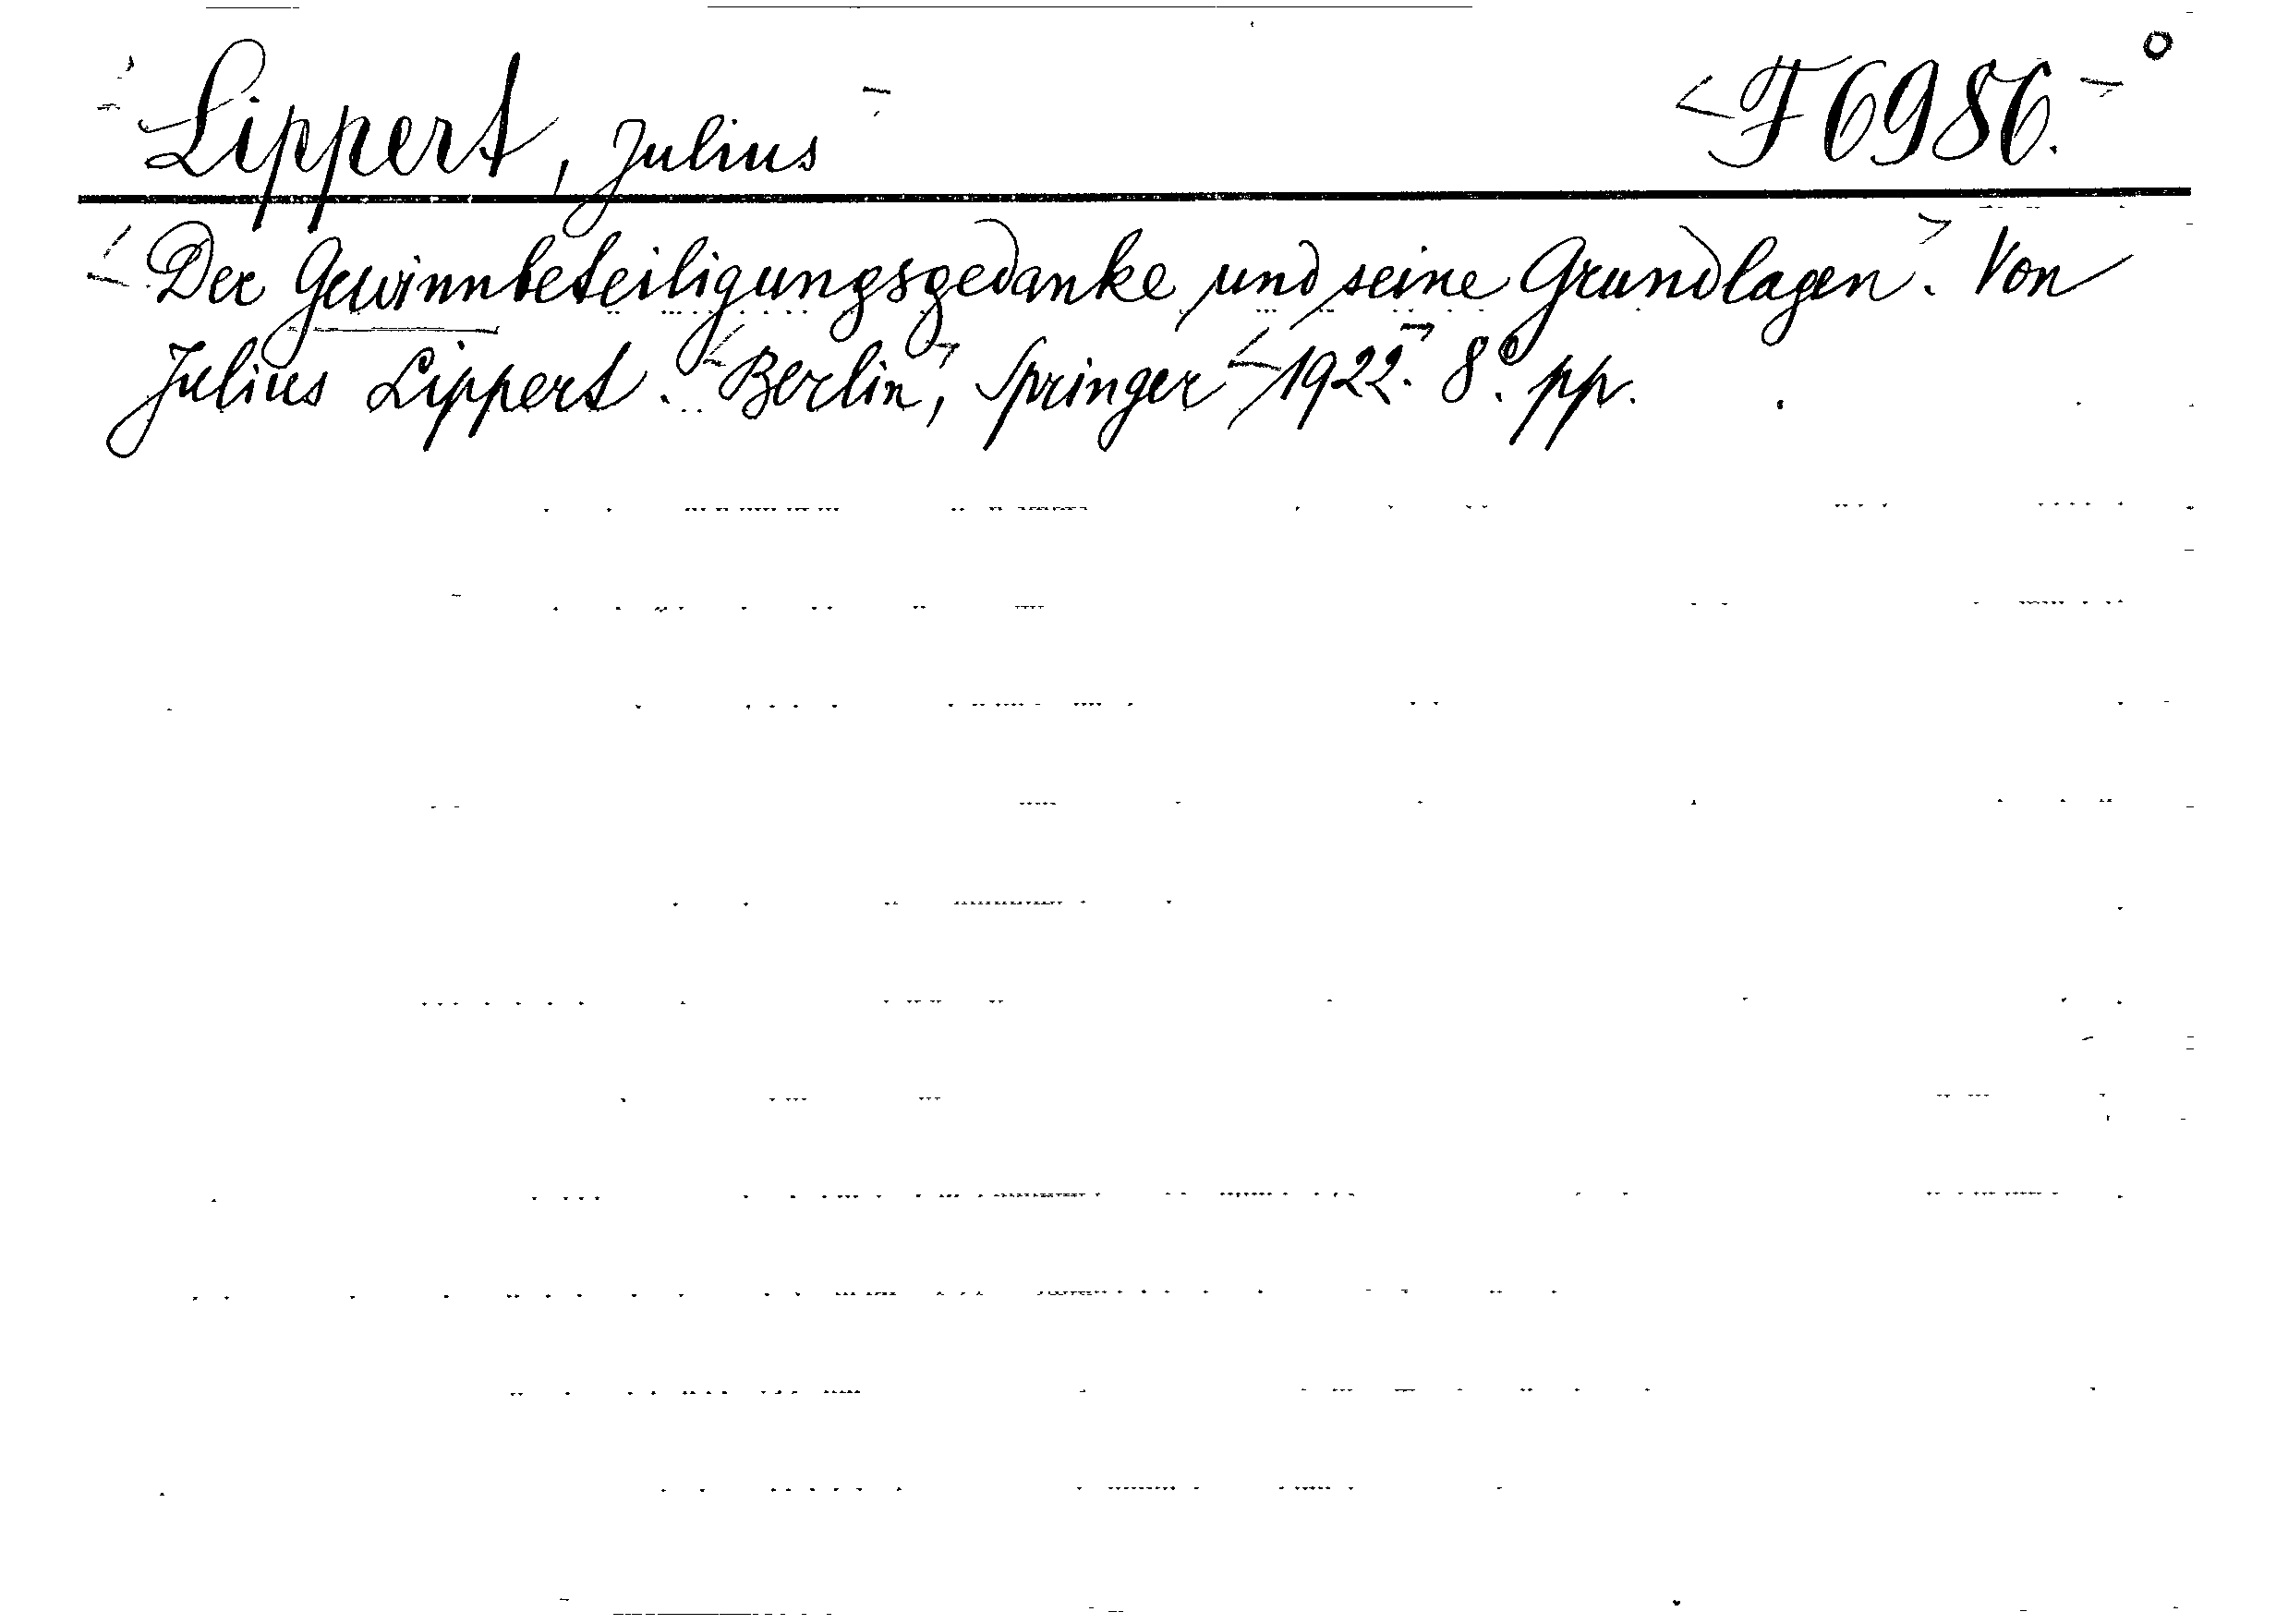 Lippert, Julius F 6986.
Der Gewinnbeteiligungsgedanke und seine Grundlagen. Von
Julius Lippert. Berlin, Springer 1922. 8°. pp.